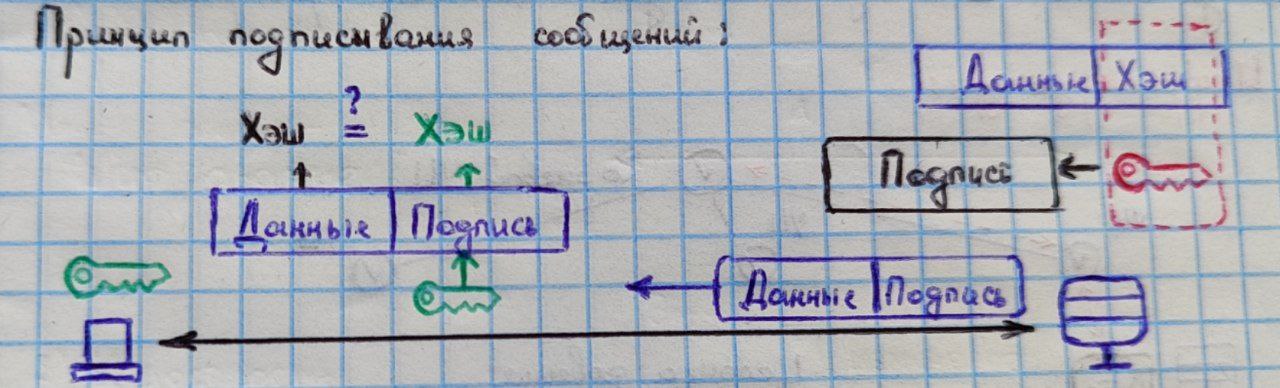 Принцип подписывания сообщений:
Данные Хэш
?
Хэш = Хэш
Подпись
Данные Подпись
Данные Подпись